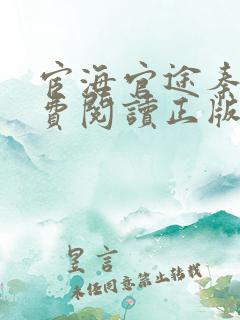 宦海官途秦
費閱讀正版
皇言
未经同意禁止转载